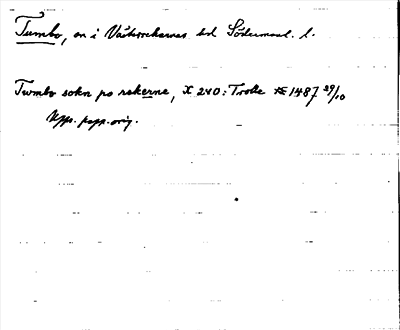 Tumbo, sn i Västerrekarnes hd Södermanl. l.
Tumbo sokn po rekerne, X 240: Trolle 1487 29/10
Upps. papp. orig.